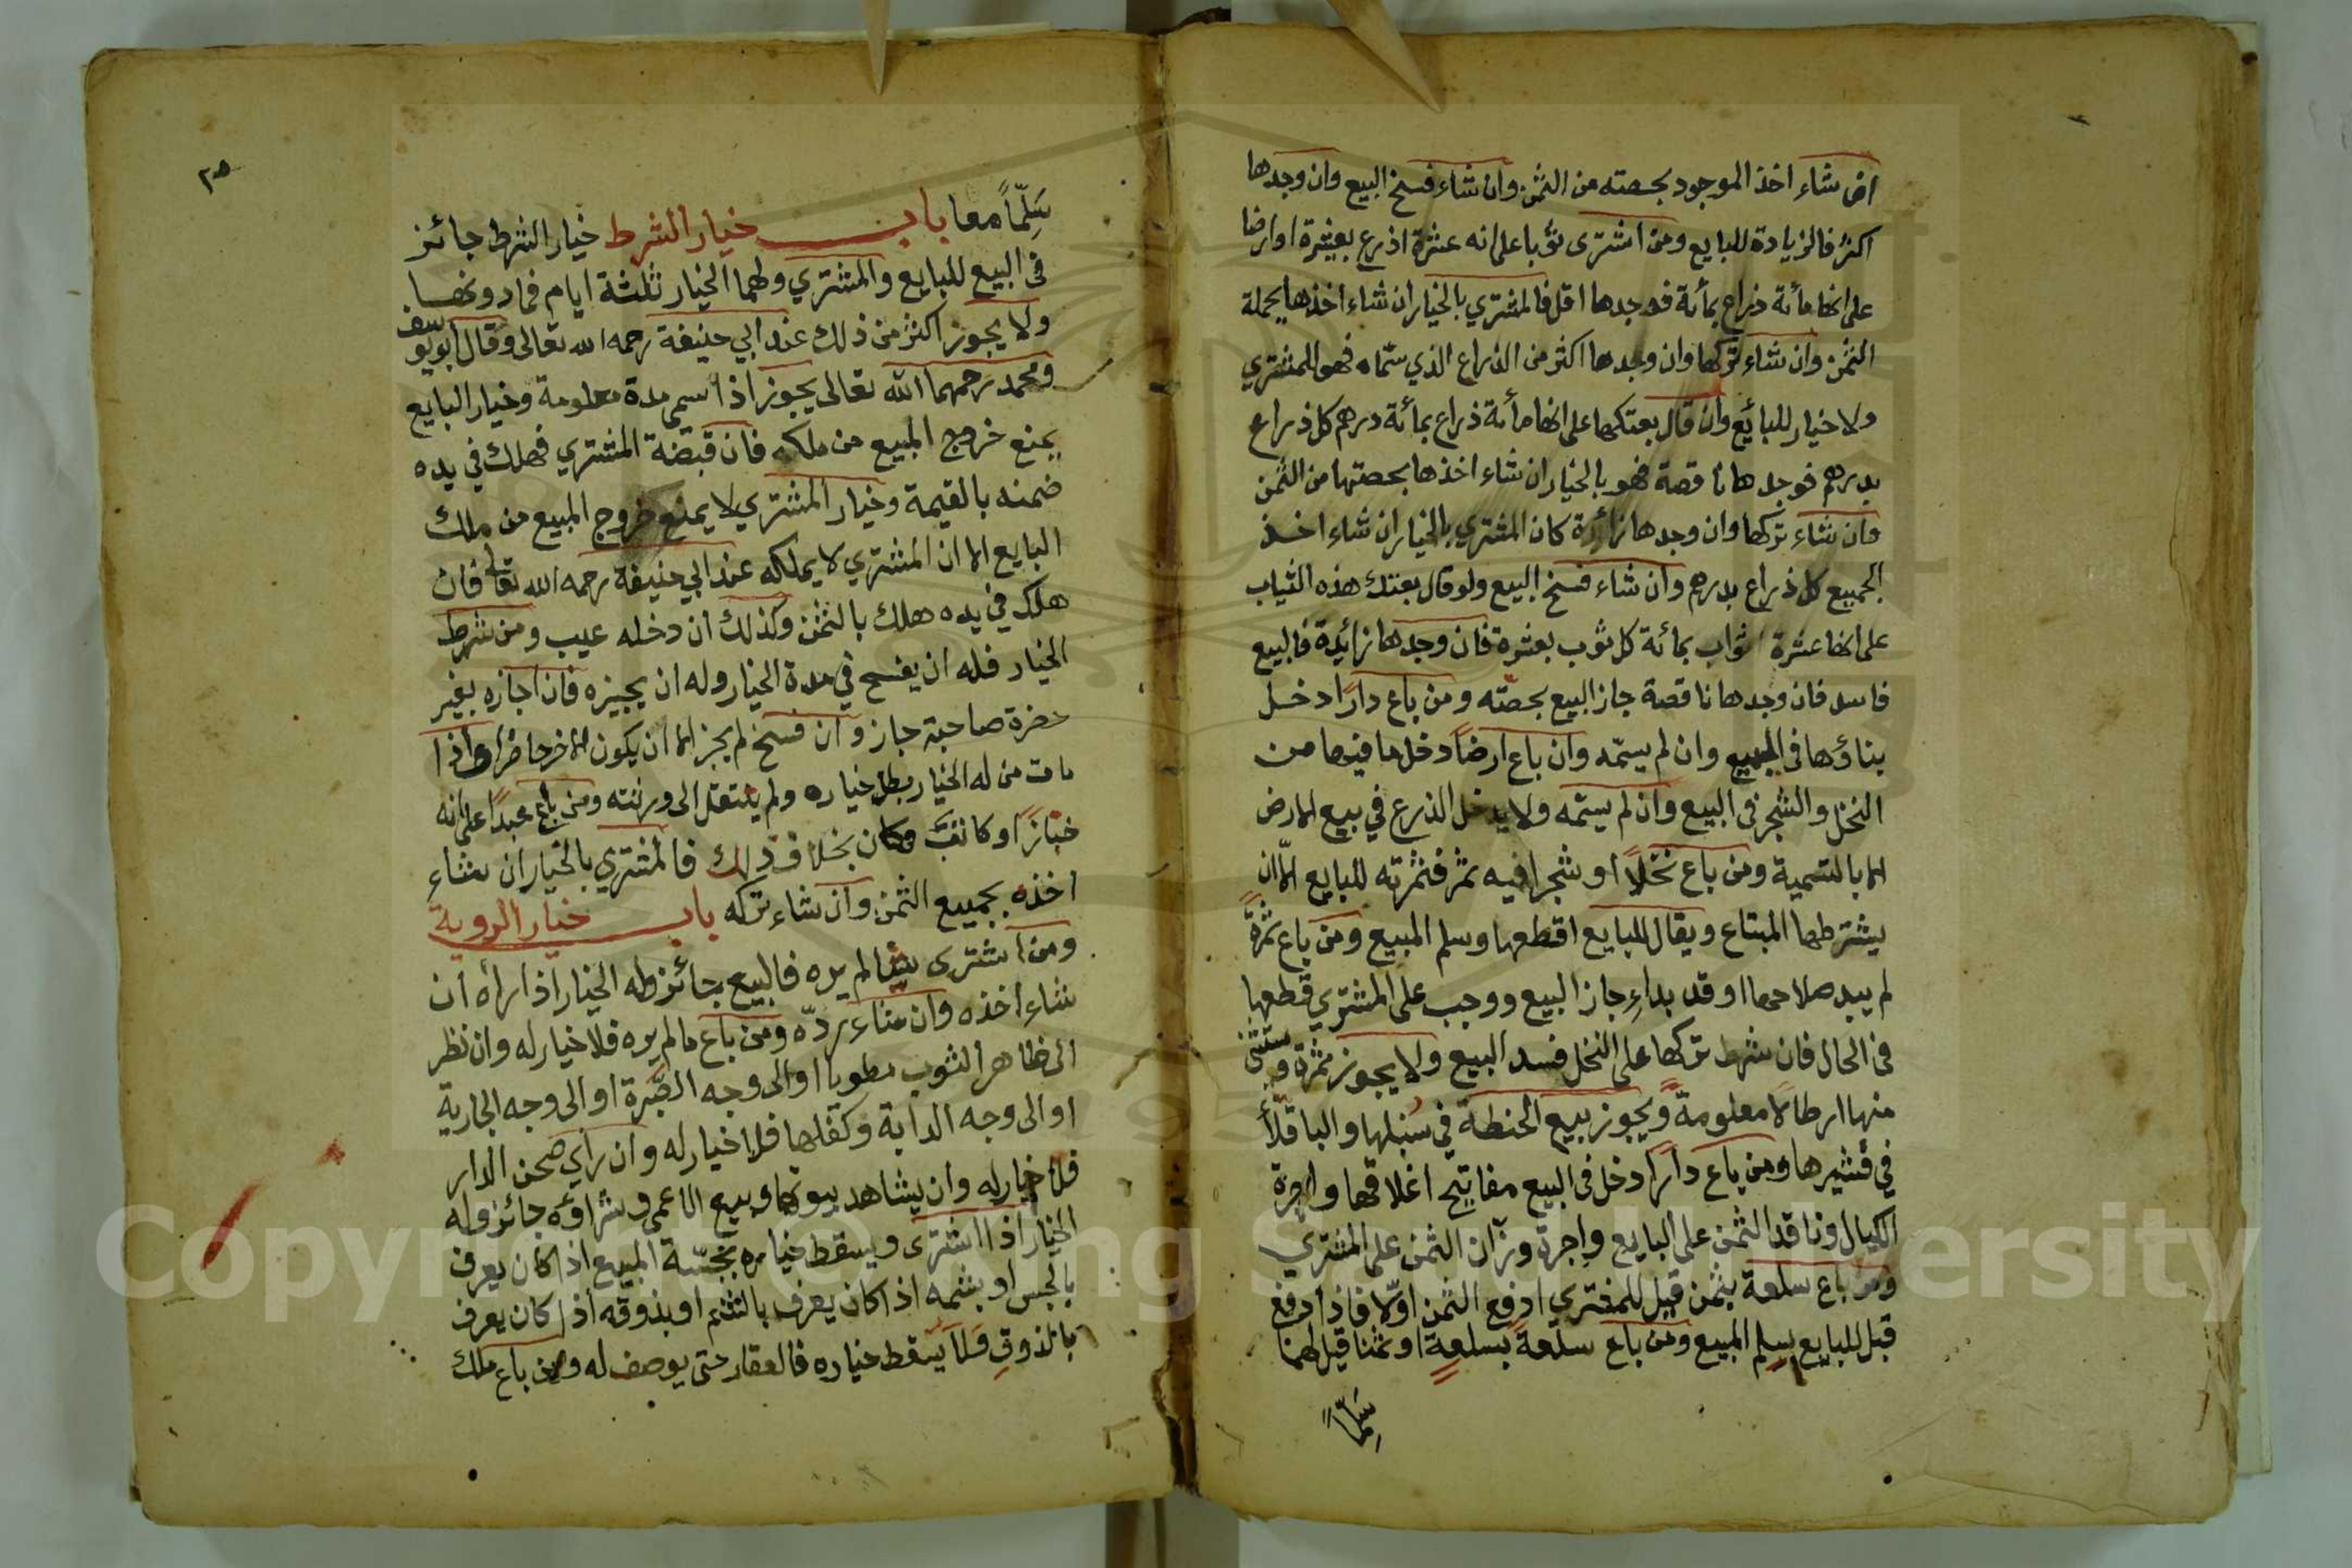 ان شاء اخذ الموجود بحصته من الثمن وان شاء فسخ البيع وان وجدها
اكثر فالزيادة للبايع ومن اشترى ثوبا على انه عشرة اذرع بعشرة او ارضا
على انها مأئة ذراع بمأئة فوجدها اقل فالمشتري بالخيار ان شاء اخذها بجملة
الثمن وان شاء تركها وان وجدها اكثر من الذراع الذي سمّاه فهو للمشتري
ولا خيار للبائع وان قال بعتكها على انها مأئة ذراع بمأئة درهم كل ذراع
بدرهم فوجدها ناقصة فهو بالخيار ان شاء اخذها بحصتها من الثمن
وان شاء تركها وان وجدها زائدة كان المشتري بالخيار ان شاء اخذ
الجميع كل ذراع بدرهم وان شاء فسخ البيع ولو قال بعتك هذه الثياب
على انها عشرة اثواب بمائة كل ثوب بعشرة فان وجدها زائدة فالبيع
فاسد فان وجدها ناقصة جاز البيع بحصّته ومن باع دارا دخل
بناؤها في البيع وان لم يسمّه وان باع ارضاً دخل ما فيها من
النخل والشجر في البيع وان لم يسمّه ولا يدخل الذرع في بيع الارض
الا بالتسمية ومن باع نخلاً او شجرا فيه ثمر فثمرته للبايع الّا ان
يشترطها المبتاع ويقال للبايع اقطعها وسلم المبيع ومن باع ثمرةً
لم يبد صلاحها او قد بداءِ جاز البيع ووجب على المشتري قطعها
في الحال فان شرط تركها على النخل فسد البيع ولا يجوز ثمرة ويستثنى
منها ارطالاً معلومةً ويجوز بيع الحنطة في سُنبلها والباقلّأ
في قشيرها ومن باع داراً دخل في البيع مفاتيح اغلاقها واجرة
الكيال وناقد الثمن على البايع وإجرة وزّان الثمن على المشتري
ومن باع سلعة بثمن قيل للمشتري ادفع الثمن اوّلا فاذا دفع
قيل للبايع سلم المبيع ومن باع سلعةً بسلعةٍ او ثمنا قيل لهما
سَلِّمَاً
٣٥
سَلِّمَاً معا باب خيار الشرط خيار الشرط جائز
في البيع للبايع والمشتري ولهما الخيار ثلثة ايام فمادونها
ولا يجوز اكثر من ذلك عند ابي حنيفة رحمه الله تعالى وقال ابويوسف
ومحمد رحمهما الله تعالى يجوز اذا سمى مدة معلومة وخيار البايع
يمنع خروج المبيع من ملكه فان قبضة المشتري فهلك في يده
ضمنه بالقيمة وخيار المشتري لا يمنع خروج المبيع من ملك
البايع الا ان المشتري لا يملكه عند ابي حنيفة رحمه الله تعالى فان
هلك في يده هلك بالثمن وكذلك ان دخله عيب ومن شرط
الخيار فله ان يفسح في مدة الخيار وله ان يجيزه فان اجازه بغير
حضرة صاحبة جاز وان فسخ لم يجز الا ان يكون الاخر حاضرا واذا
مات من له الخيار بطل خياره ولم ينتقل الى ورثته ومن باع عبداً على انه
خبّازًا او كاتبً وكان بخلاف ذلك فالمشتري بالخيار ان شاء
اخذه بجميع الثمن وان شاء تركه باب خيار الروية
ومن اشترى شيئا لم يره فالبيع جائز وله الخيار اذا رأه ان
شاء اخذه وان شاء ردّه ومن باع ما لم يره فلا خيار له وان نظر
الى ظاهر الثوب مطويا او الى وجه الصّبرة او الى وجه الجارية
او الى وجه الدابة وكفلها فلا خيار له وان راى صحن الدار
فلا خيار له وان يشاهد بيوتها وبيع الاعمى وشراؤه جائز وله
الخيار اذا اشترى ويسقط خياره بجسّة المبيع اذا كان يعرف
بالجس او بشمه اذا كان يعرف بالشم او بذوقه اذا كان يعرف
بالذوقِ فَلاَ يسقط خياره فالعقار حتى يوصف له ومن باع ملك
Copyright © King Saud University